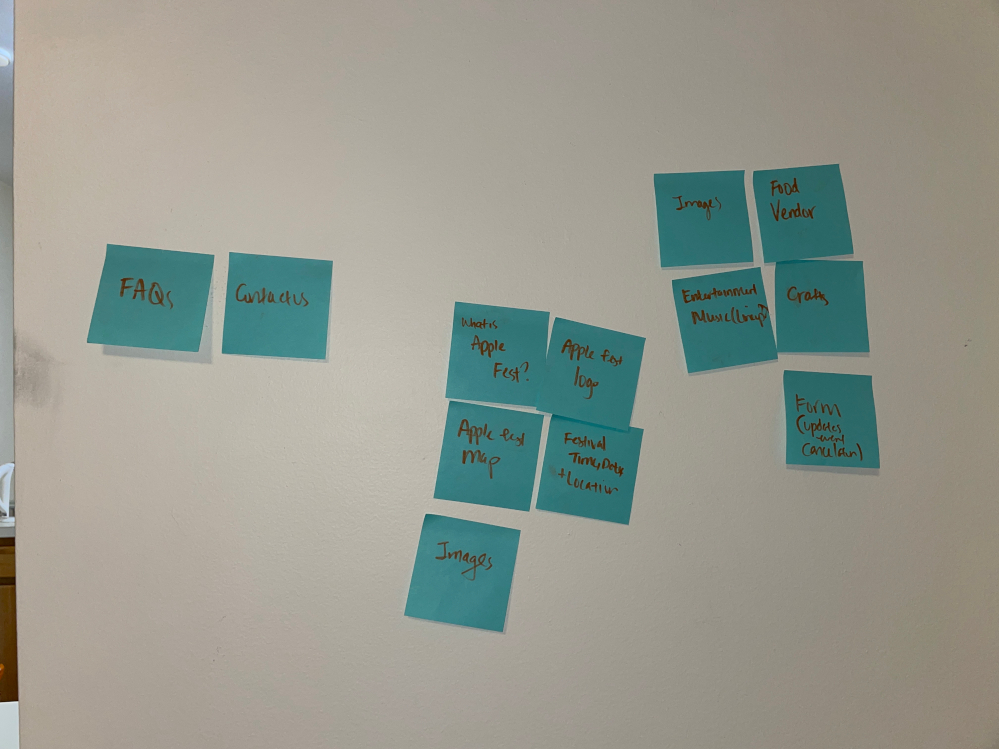 FAQs
Contact us
What is
Apple
Fest?
Apple fest
logo
Apple fest
Map
Festival
Time, Date
+ Location
Images
Images
Food
Vendor
Entertainment
Music
Crafts
Form
(updates
event